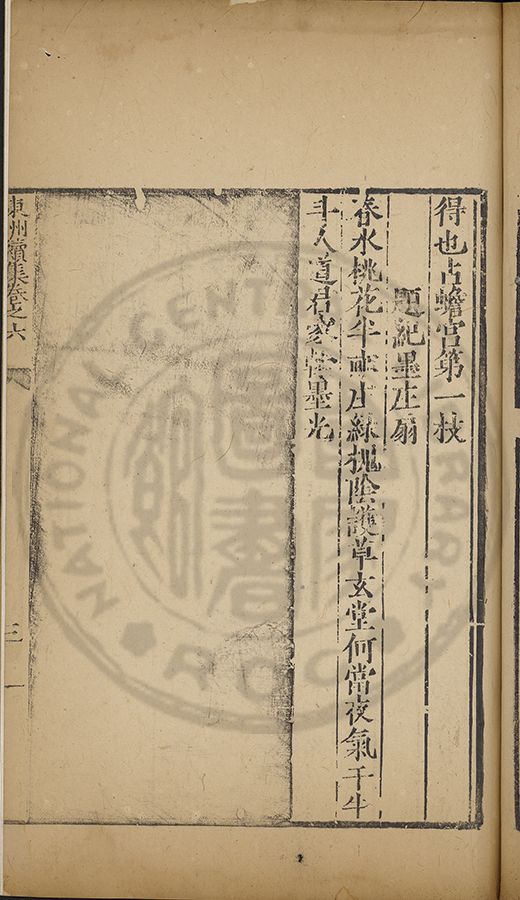 得也占蟾宫第一枝
題紀墨庄扇
春水桃花半畝庄綠槐陰護草玄堂何當夜氣干牛
斗人道君家翰墨光
東州續集卷之六
三